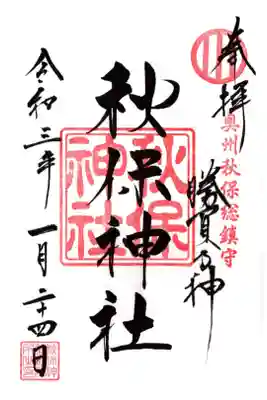 奉拝
奥州秋保総鎮守
勝負の神
秋保神社
秋保神社
令和三年一月二十四日